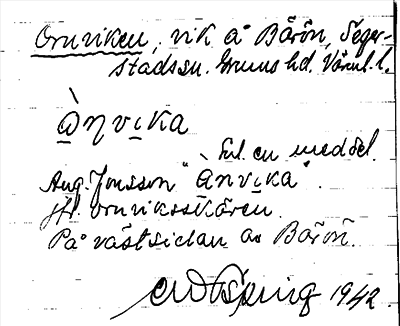 Ornviken, vik å Bärön, Seger-
stadssn. Grums hd. Värml. l.
ànvika
Enl. en meddel.
Aug. Jonsson "Ànvika".
jfr. Ornviksskären.
På västsidan av Bärön.
1942.